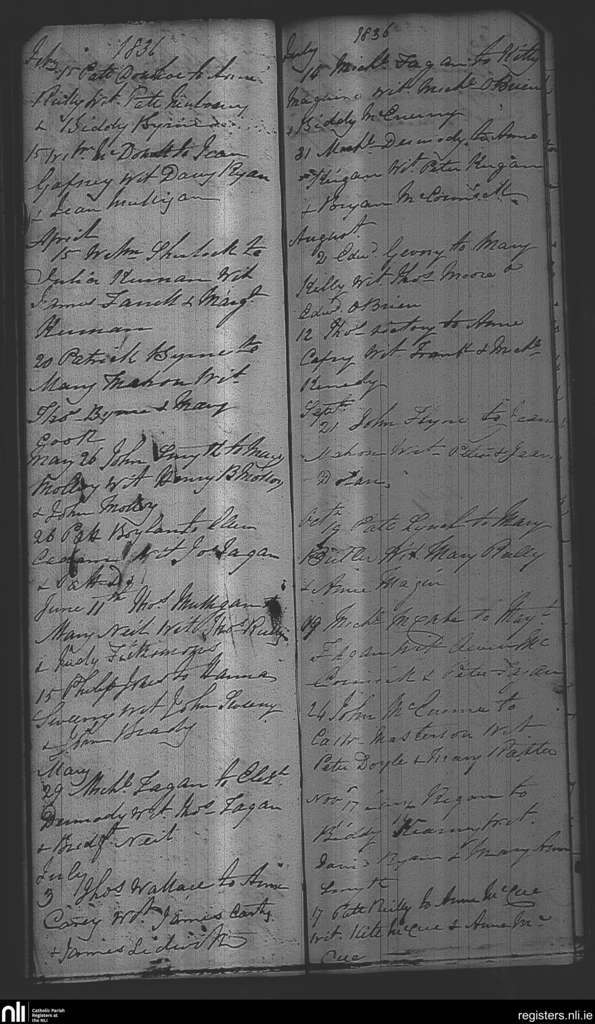 1836
Feby 15 Patt to Anne
Reilly Wit. Patt
& Biddy Byrne
15 Wm McDonell to Jean
Gafney Wit Davy Ryan
& Jean Mulligan
April
15 Willm Sherlock to
Julia Kernan Wit
James Farrell & Margt
Kernan
20 Patrick Byrne to
Mary Mahon Wit
Thos Byrne & Mary
Cook
May 26 John Smyth to Mary
Molloy Wt Henry Molloy
& John Molloy
26 Patt Boylan to Ellen
Wt Jos Fagan
& Patt
June 11th Thos Mulligan to
Mary Neil Wit Thos Reilly
& Judy Fitzsimons
15 Philip to Hanna
Sweeny Wit John Sweeny
& John Brady
May
29 Michl Fagan to Elizt
Dermody Wit Thos Fagan
& Bridgt Neil
July
3 Thos Wallace to Anne
Carey Wt. James Carty
& James Ledwith
1836
July
14 Michl. Fagan to Kitty
Maguire Wit. Michl. O'Brien
& Biddy McCnerny
31 Michl. Dermody to Anne
Keegan Wit. Peter Keegan
& Bryan McConnell
August
2 Edwd. Geoory to Mary
Kelly Wit Thos Moore &
Edwd. O'Brien
12 Thos to Anne
Cafry Wit Frank & Michl.
Kenedy
Septr.
21 John Flyne to Jean
Mahon Wit Peter & Jean
Dolan
Octr. 19 Patt Lynch to Mary
Butler Wt Mary Reilly
& Anne Magin
19 Michl. McCabe to Mayt.
Fagan Wit Mc
Cormick & Peter Fagan
24 John McCunne to
Cathr. Masterson Wit
Peter Doyle & Mary Baxter
Novr 17 Regan to
Biddy Kearny Wit.
Ryan & Mary Anne
Smyth
17 Patt Reilly to Anne McCue
Wit. Kitt McCue & Anne Mc
Cue
nli
Catholic Parish
Registers at
the NLI
registers.nli.ie